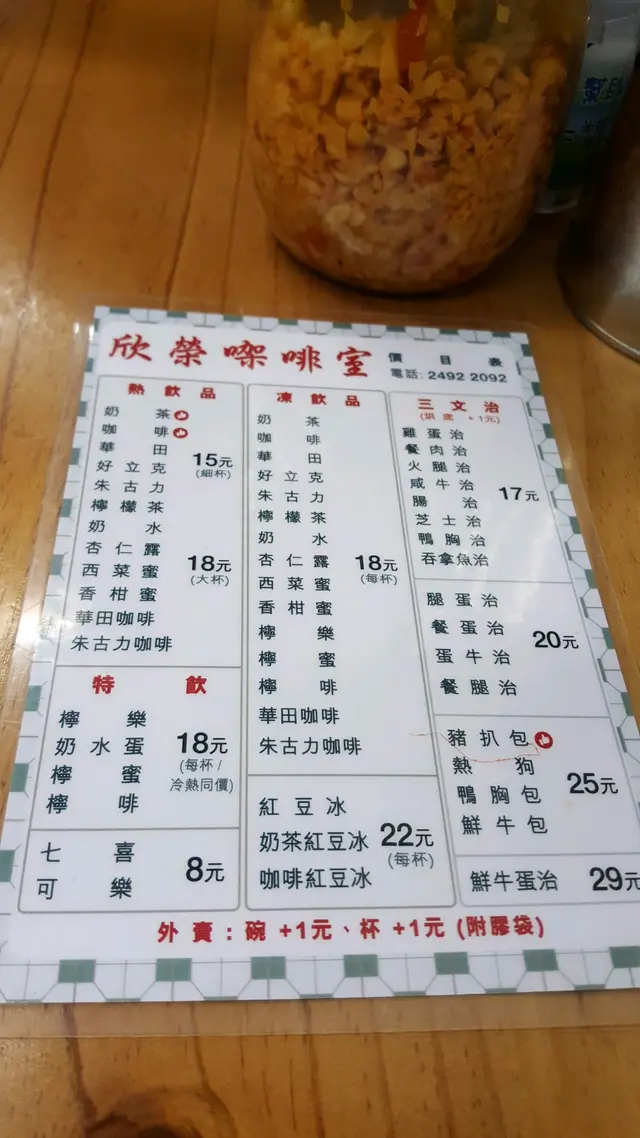 欣榮㗎啡室 價目表
電話: 2492 2092
熱飲品
奶茶
咖啡
華田
好立克
朱古力
檸檬茶
奶水
杏仁露
西菜蜜
香柑蜜
華田咖啡
朱古力咖啡
15元
(細杯)
18元
(大杯)
特飲
檸樂
奶水蛋
檸蜜
檸啡
18元
(每杯/
冷熱同價)
七喜
可樂
8元
凍飲品
奶茶
咖啡
華田
好立克
朱古力
檸檬茶
奶水
杏仁露
西菜蜜
香柑蜜
檸樂
檸蜜
檸啡
華田咖啡
朱古力咖啡
18元
(每杯)
紅豆冰
奶茶紅豆冰
咖啡紅豆冰
22元
(每杯)
三文治
(烘底 +1元)
雞蛋治
餐肉治
火腿治
咸牛治
腸治
芝士治
鴨胸治
吞拿魚治
17元
腿蛋治
餐蛋治
蛋牛治
餐腿治
20元
豬扒包
熱狗
鴨胸包
鮮牛包
25元
鮮牛蛋治
29元
外賣：碗 +1元、杯 +1元 (附膠袋)